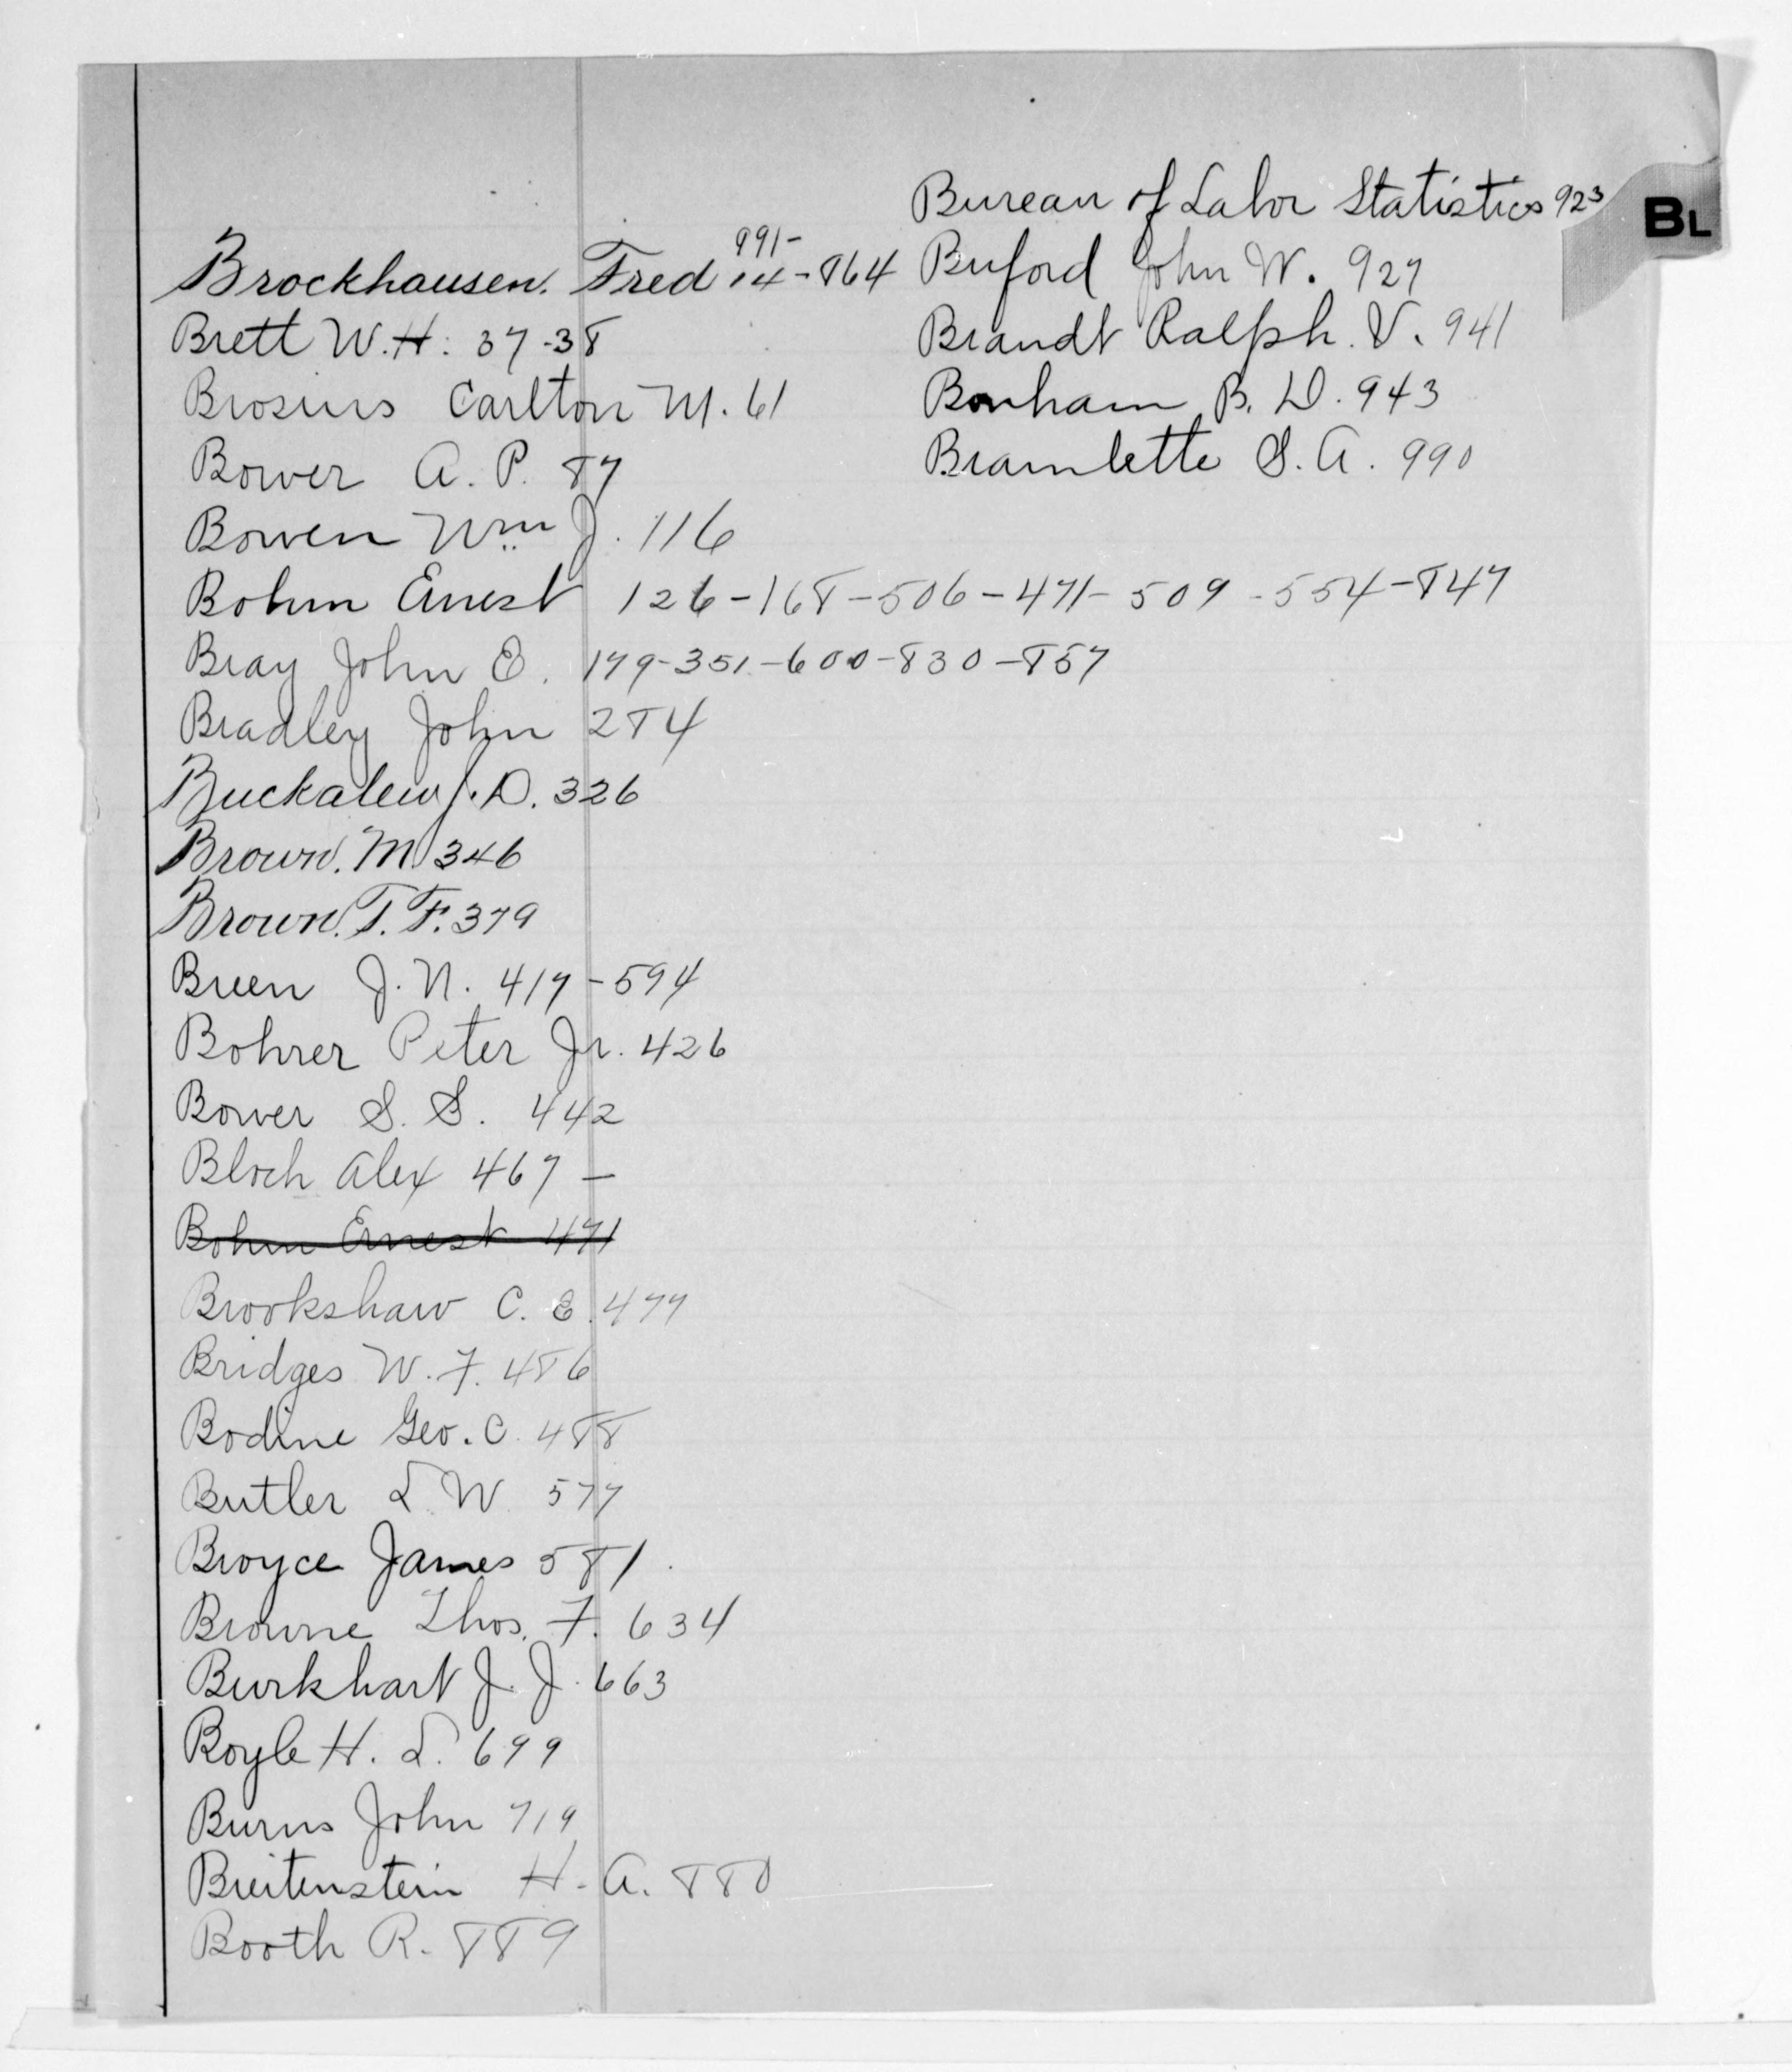 BL
991-
Brockhausen. Fred 14-864
Brett W.H. 37-38
Brosius Carlton M. 61
Bower A. P. 87
Bowen Wm J. 116
Bohm Ernest 126-168-506-471-509-554-847
Bray John E. 179-351-600-830-857
Bradley John 284
Buckalew J. D. 326
Brown. M. 346
Brown. T. F. 379
Breen J. N. 417-594
Bohrer Peter Jr. 426
Bower S. S. 442
Bloch Alex 467 -
Bohm Ernest 471
Brookshaw C. E. 477
Bridges W. F. 486
Bodine Geo. C. 488
Butler L W 577
Broyce James 581
Browne Thos. F. 634
Burkhart J. J. 663
Boyle H. L. 699
Burns John 719
Breitenstein H. A. 880
Booth R. 889
Bureau of Labor Statistics 923
Buford John W. 927
Brandt Ralph. V. 941
Bonham B. D. 943
Bramlette S. A. 990